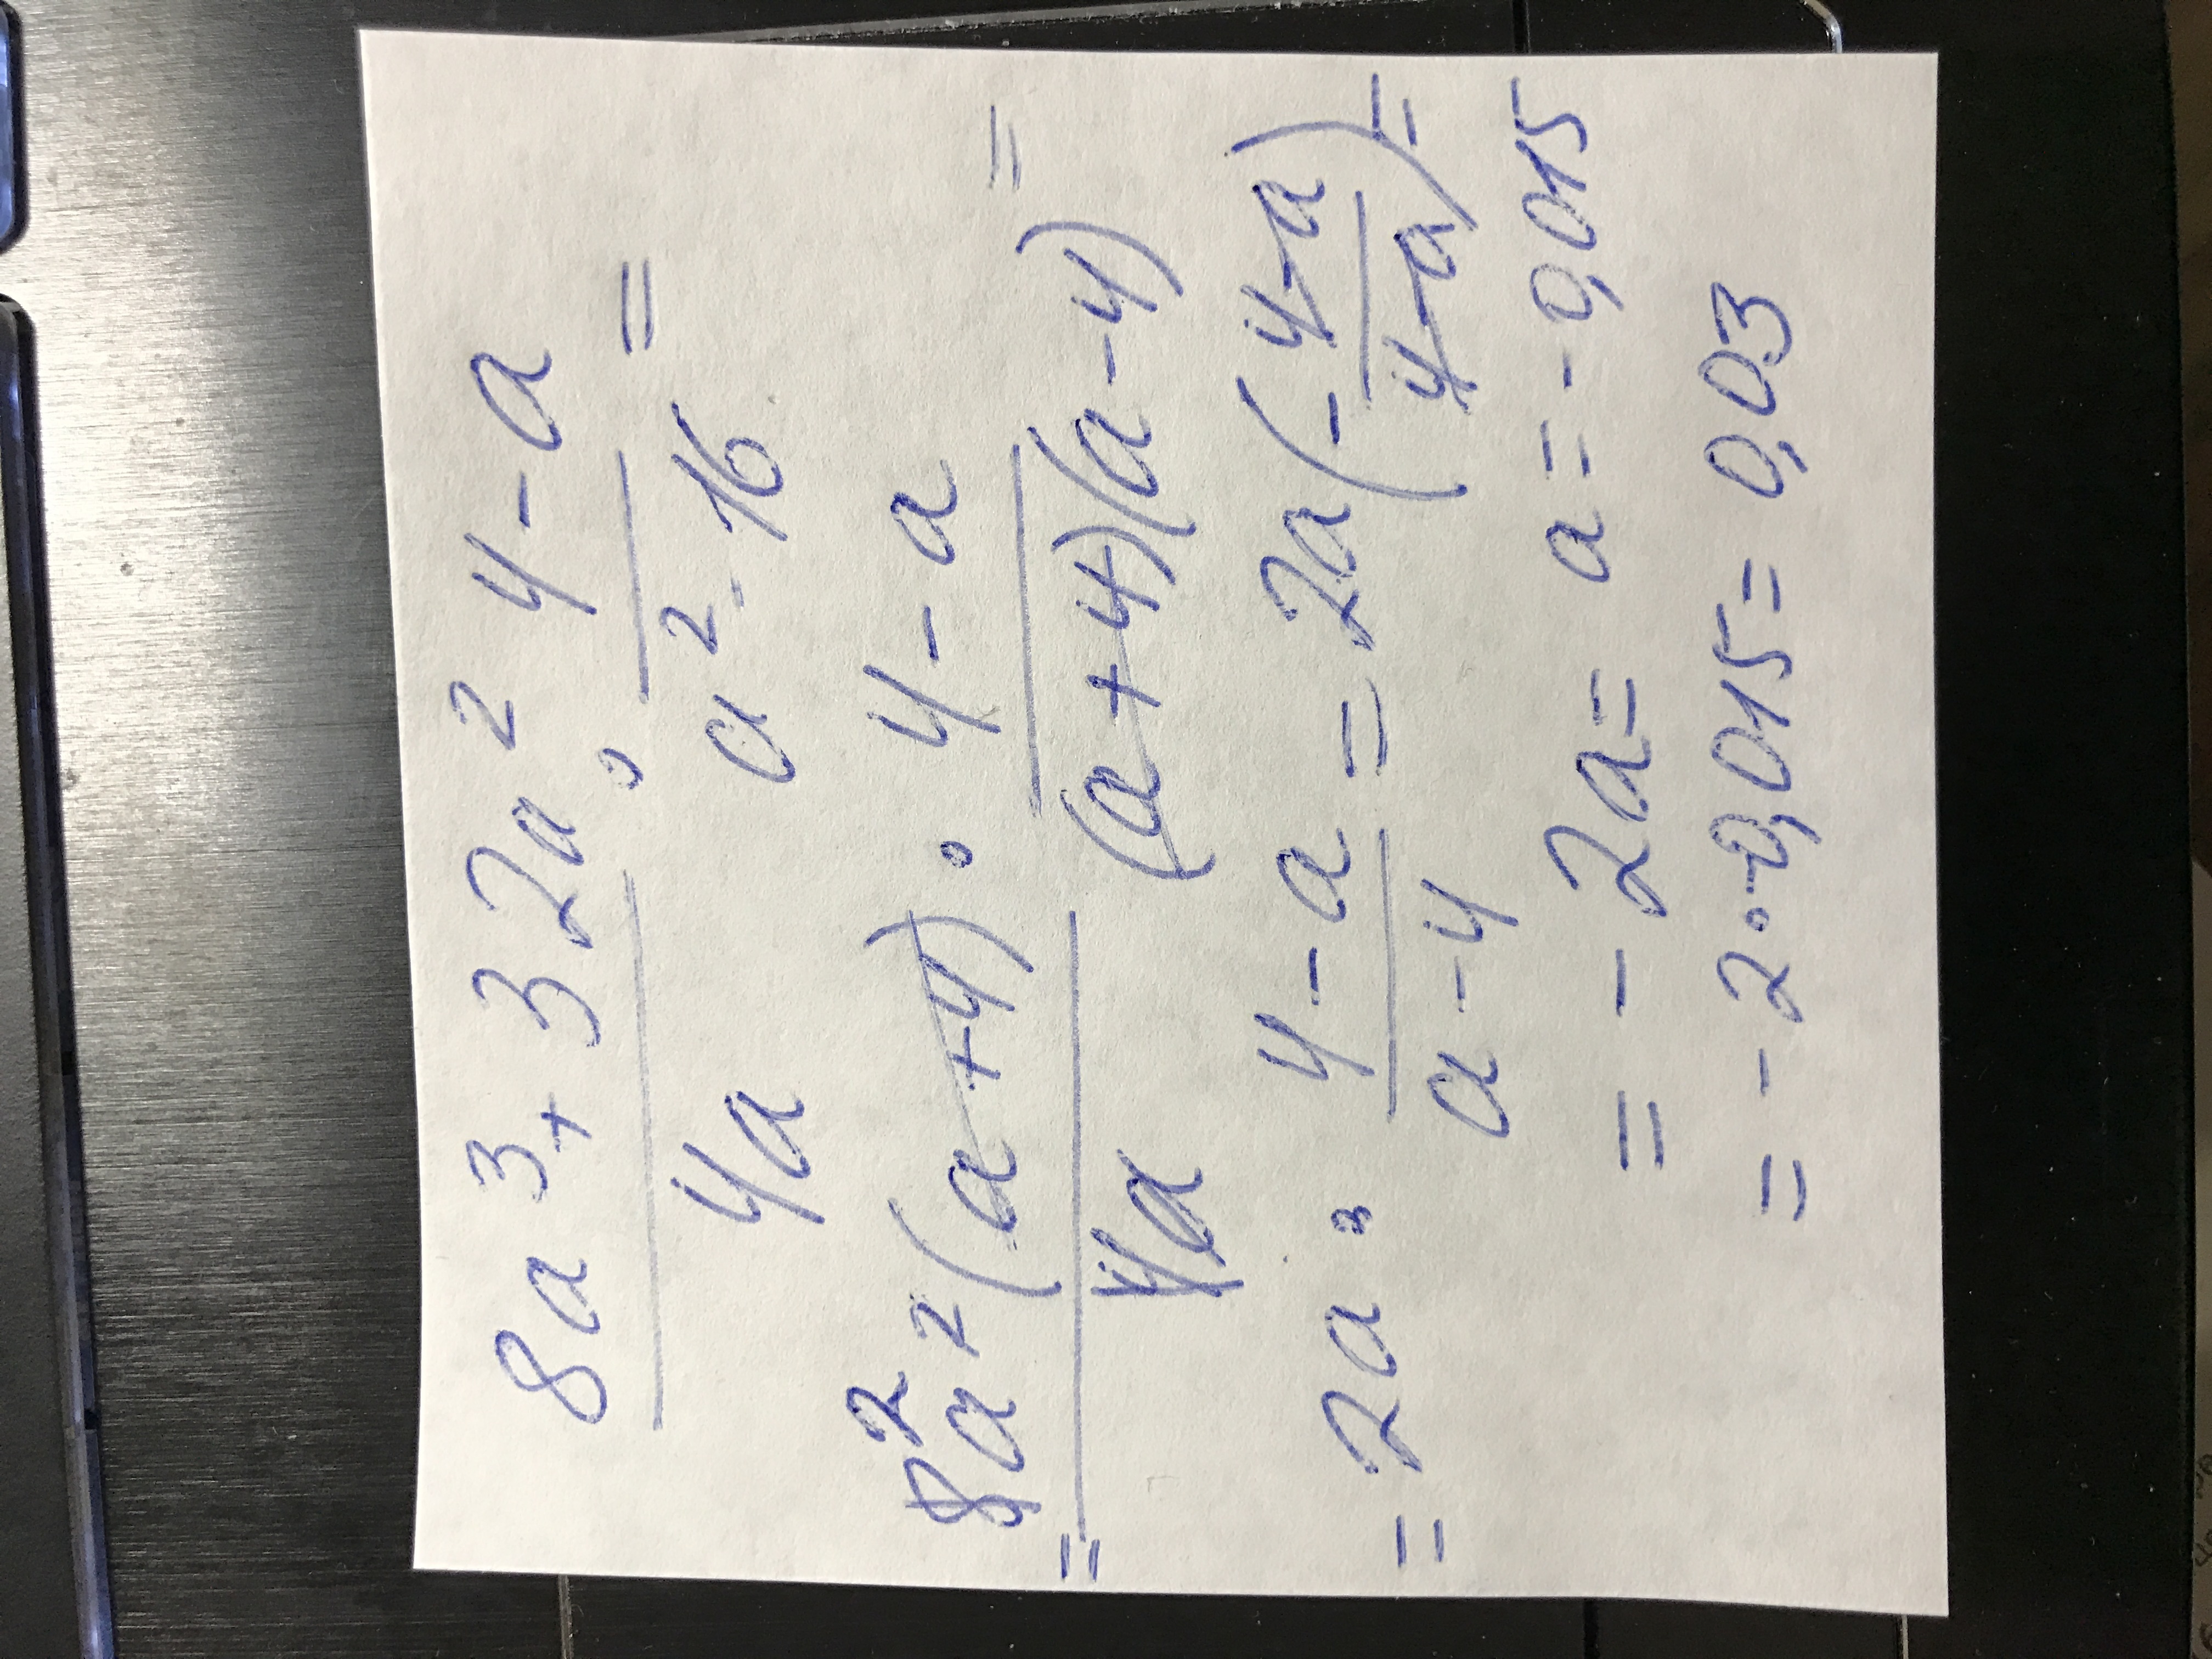 8a³ + 32a² · 4 - a =
4a a² - 16
= 8² a² (a + 4) · 4 - a =
4a (a + 4)(a - 4)
= 2a · 4 - a = 2a (- 4 - a) =
a - 4 4 - a
= - 2a = a = - 0,015
= - 2 · - 0,015 = 0,03